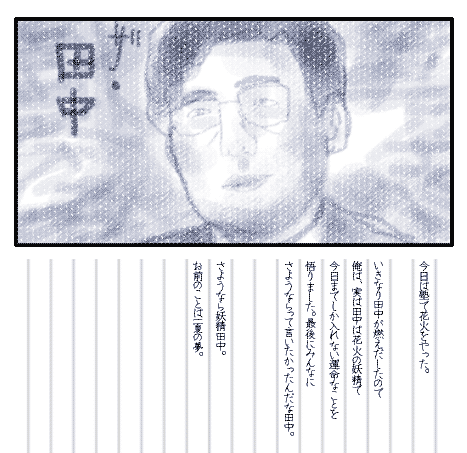 ザ・
田中
今日は塾で花火をやった。
いきなり田中が燃えだしたので
俺は、実は田中は花火の妖精で
今日までしか入れない運命なことを
悟りました。最後にみんなに
さようならって言いたかったんだな田中。
さようなら妖精田中。
お前のことは一夏の夢。